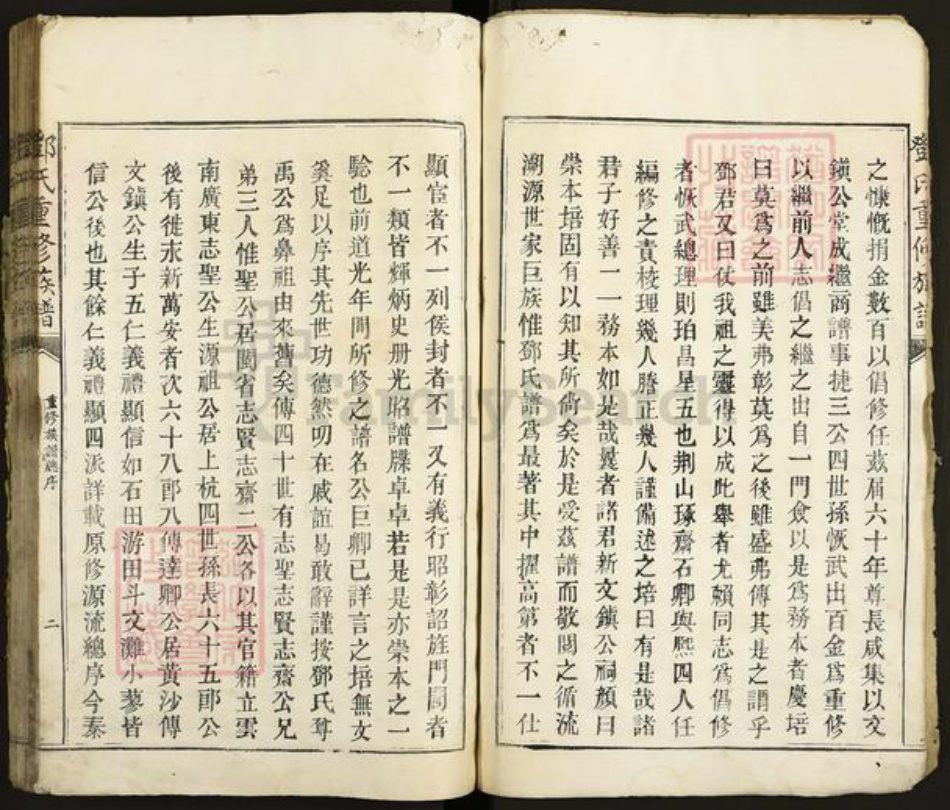 之慷慨捐金數百以倡修任茲屆六十年尊長咸集以文
鎮公堂成繼商譜事捷三公四世孫恢武出百金爲重修
以繼前人志倡之繼之出自一門僉以是爲務本者慶培
曰莫爲之前雖美弗彰莫爲之後雖盛弗傳其是之謂乎
鄧君又曰仗我祖之靈得以成此舉者尤賴同志爲倡修
者恢武總理則珀昌星五也荆山琢齋石卿與熙四人任
編修之責校理幾人謄正幾人謹備述之培曰有是哉諸
君子好善一一務本如是哉曩者諸君新文鎮公祠顏曰
崇本培固有以知其所尚矣於是受茲譜而敬閱之循流
溯源世家巨族惟鄧氏譜爲最著其中擢高第者不一仕
顯宦者不一列侯封者不一又有義行昭彰詔旌門閭者
不一類皆輝炳史册光昭譜牒卓卓若是是亦崇本之一
騐也前道光年間所修之譜名公巨卿已詳言之培無文
奚足以序其先世功德然叨在戚誼曷敢辭謹按鄧氏尊
禹公爲鼻祖由來舊矣傳四十世有志聖志賢志齋公兄
弟三人惟聖公居閩省志賢志齋二公各以其官籍立雲
南廣東志聖公生源祖公居上杭四世孫長六十五郎公
後有徙永新萬安者次六十八郎八傳達卿公居黃沙傳
文鎮公生子五仁義禮顯信如石田游田斗文灘小蓼皆
信公後也其餘仁義禮顯四派詳載原修源流總序今秦
鄧氏重修族譜
重修族譜總序
二
FamilySearch